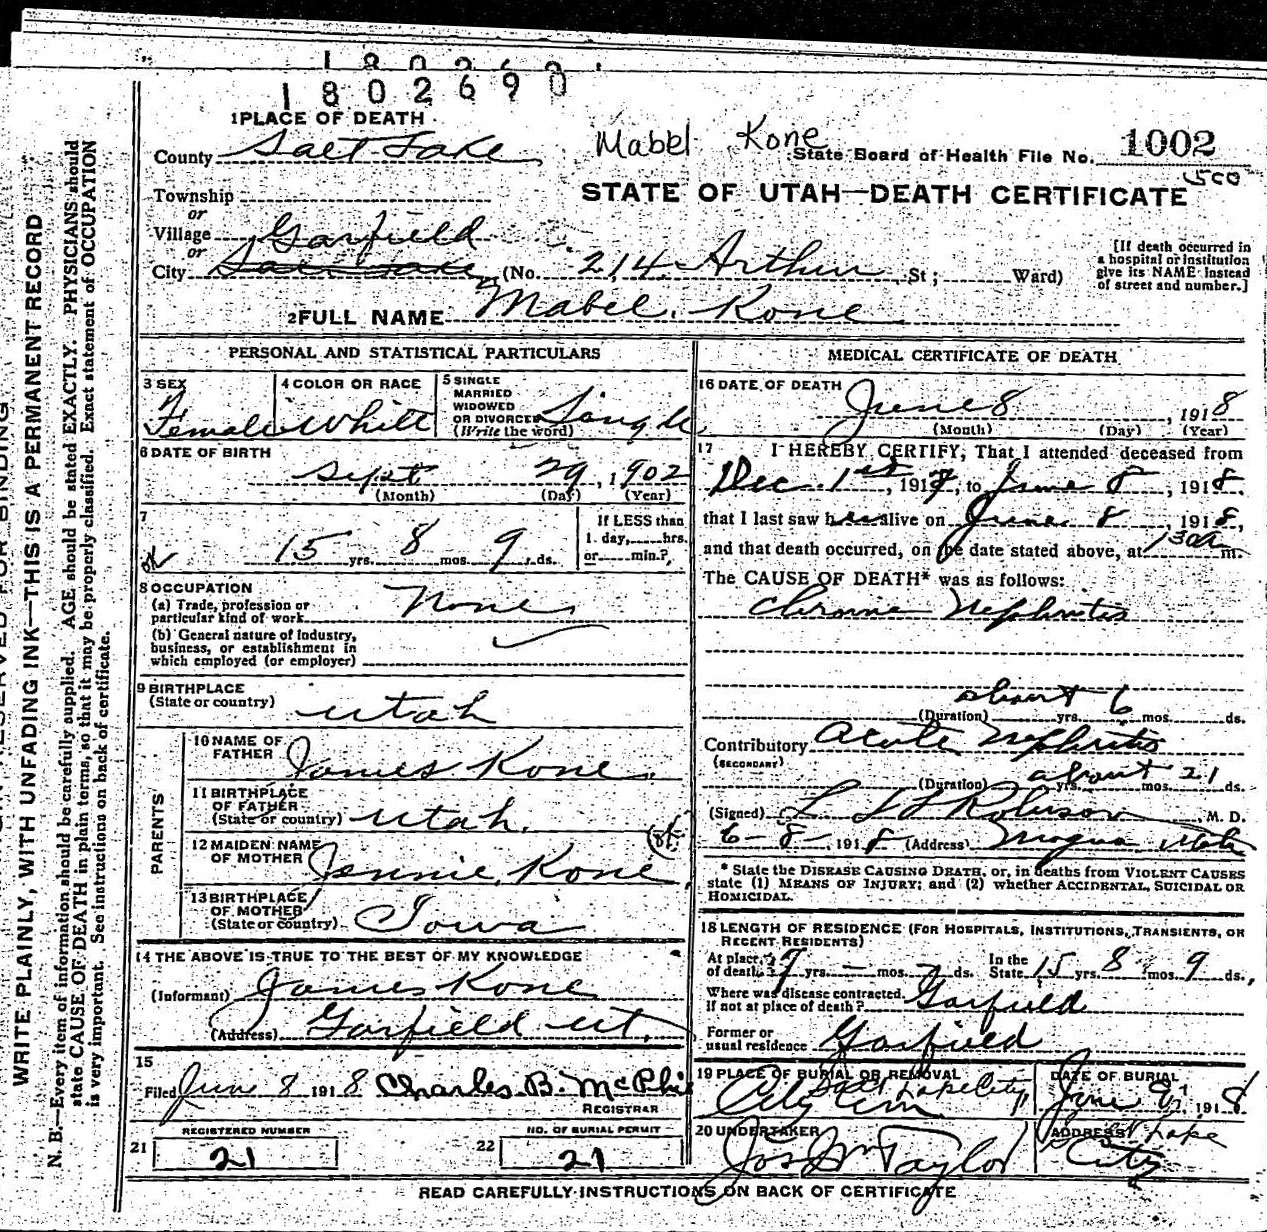 1802690
1 PLACE OF DEATH
County Salt Lake
Mabel Kone
State Board of Health File No. 1002
500
Township
or
Village Garfield
or
City Salt Lake (No. 214 Arthur St; Ward)
STATE OF UTAH—DEATH CERTIFICATE
[If death occurred in
a hospital or institution
give its NAME instead
of street and number.]
2 FULL NAME Mabel Kone
PERSONAL AND STATISTICAL PARTICULARS
3 SEX
Female
4 COLOR OR RACE
White
5 SINGLE
MARRIED
WIDOWED
OR DIVORCED
(Write the word)
Single
6 DATE OF BIRTH
Sept 29, 1902
(Month) (Day) (Year)
7
15 yrs. 8 mos. 9 ds.
If LESS than
1 day, hrs.
or min.?
8 OCCUPATION
(a) Trade, profession or
particular kind of work None
(b) General nature of industry,
business, or establishment in
which employed (or employer)
9 BIRTHPLACE
(State or country) Utah
PARENTS
10 NAME OF
FATHER James Kone
11 BIRTHPLACE
OF FATHER
(State or country) Utah
12 MAIDEN NAME
OF MOTHER Jennie Kone
13 BIRTHPLACE
OF MOTHER
(State or country) Iowa
14 THE ABOVE IS TRUE TO THE BEST OF MY KNOWLEDGE
(Informant) James Kone
(Address) Garfield Ut.
15
Filed June 8 1918 Charles B. McPhie
REGISTRAR
REGISTERED NUMBER
21 21
NO. OF BURIAL PERMIT
22 21
MEDICAL CERTIFICATE OF DEATH
16 DATE OF DEATH
June 8, 1918
(Month) (Day) (Year)
17 I HEREBY CERTIFY, That I attended deceased from
Dec. 1st, 1917, to June 8, 1918,
that I last saw her alive on June 8, 1918,
and that death occurred, on the date stated above, at 130a m.
The CAUSE OF DEATH* was as follows:
Chronic Nephritis
about 6
(Duration) yrs. mos. ds.
Contributory Acute Nephritis
(SECONDARY)
about 21
(Duration) yrs. mos. ds.
(Signed) Robinson, M. D.
6-8-, 1918 (Address) Magna Utah
* State the DISEASE CAUSING DEATH, or, in deaths from VIOLENT CAUSES
state (1) MEANS OF INJURY; and (2) whether ACCIDENTAL, SUICIDAL OR
HOMICIDAL.
18 LENGTH OF RESIDENCE (FOR HOSPITALS, INSTITUTIONS, TRANSIENTS, OR
RECENT RESIDENTS)
At place
of death 7 yrs. — mos. 7 ds. In the State 15 yrs. 8 mos. 9 ds.,
Where was disease contracted,
If not at place of death? Garfield
Former or
usual residence Garfield
19 PLACE OF BURIAL OR REMOVAL
Salt Lake City
City Cem
DATE OF BURIAL
June 9, 1918
20 UNDERTAKER
Jos Wm Taylor
ADDRESS
Salt Lake
City
READ CAREFULLY INSTRUCTIONS ON BACK OF CERTIFICATE
RESERVED FOR BINDING
WRITE PLAINLY, WITH UNFADING INK—THIS IS A PERMANENT RECORD
N. B.—Every item of information should be carefully supplied. AGE should be stated EXACTLY. PHYSICIANS should
state CAUSE OF DEATH in plain terms, so that it may be properly classified. Exact statement of OCCUPATION
is very important. See instructions on back of certificate.